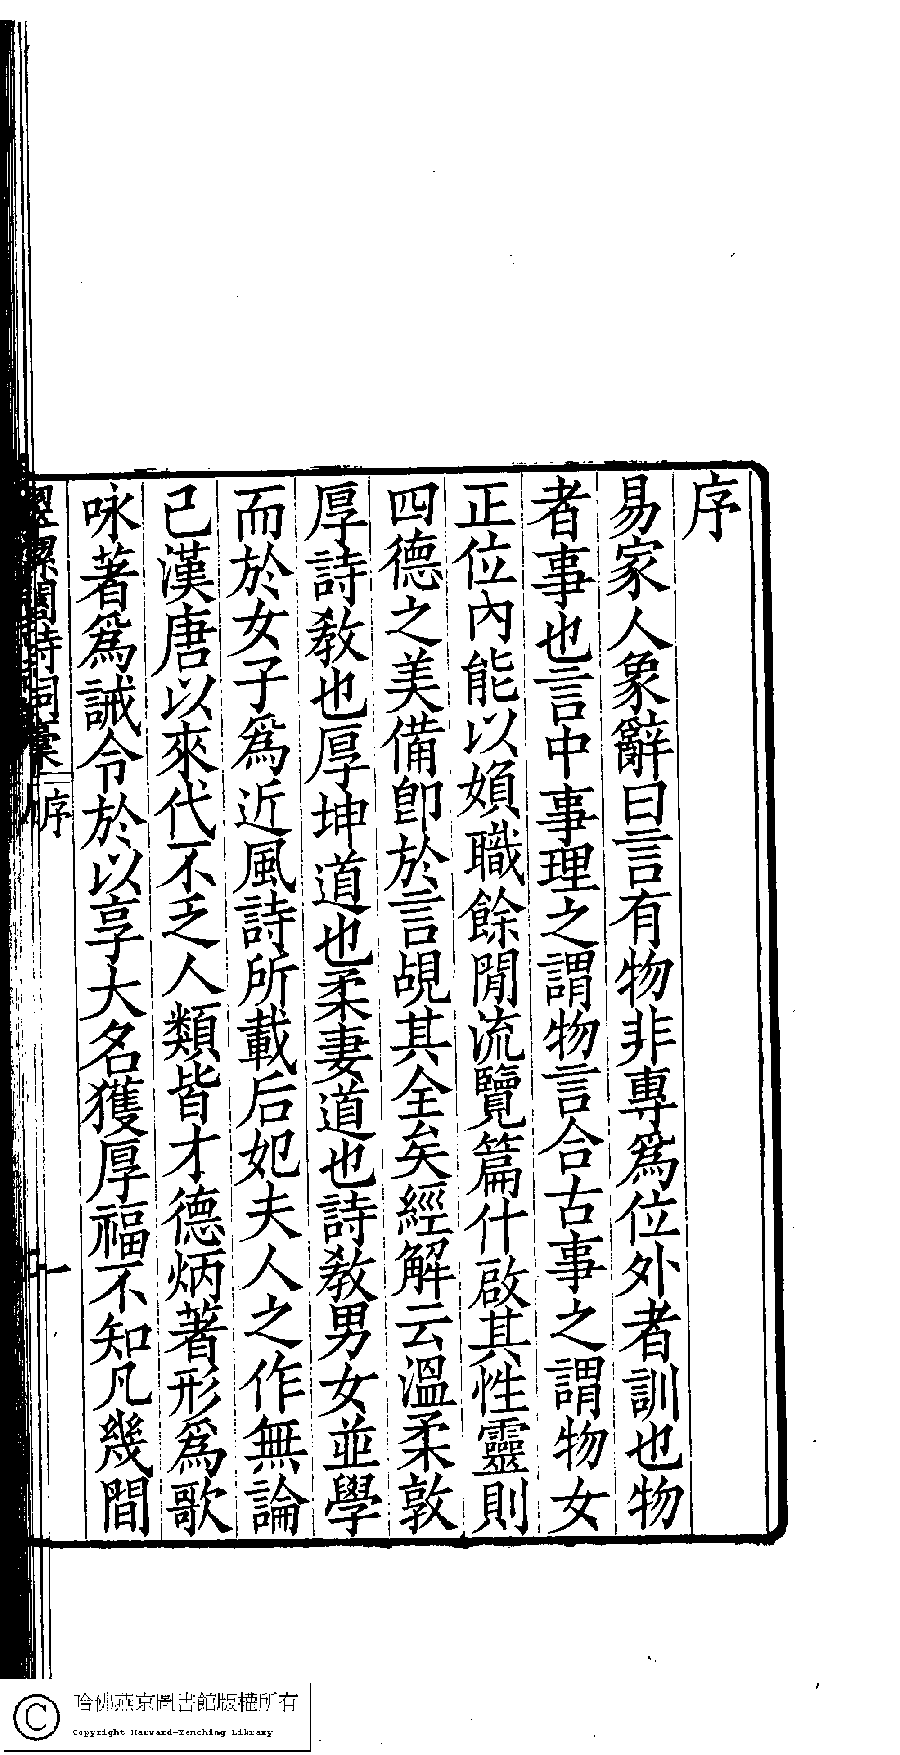 序
易家人象辭曰言有物非專爲位外者訓也物
者事也言中事理之謂物言合古事之謂物女
正位內能以嬪職餘閒流覽篇什啟其性靈則
四德之美備卽於言覘其全矣經解云溫柔敦
厚詩敎也厚坤道也柔妻道也詩敎男女並學
而於女子爲近風詩所載后妃夫人之作無論
已漢唐以來代不乏人類皆才德炳著形爲歌
咏著爲誡令於以享大名獲厚福不知凡幾間
閣詩詞彙 序 一
哈佛燕京圖書館版權所有
Copyright Harvard-Yenching Library